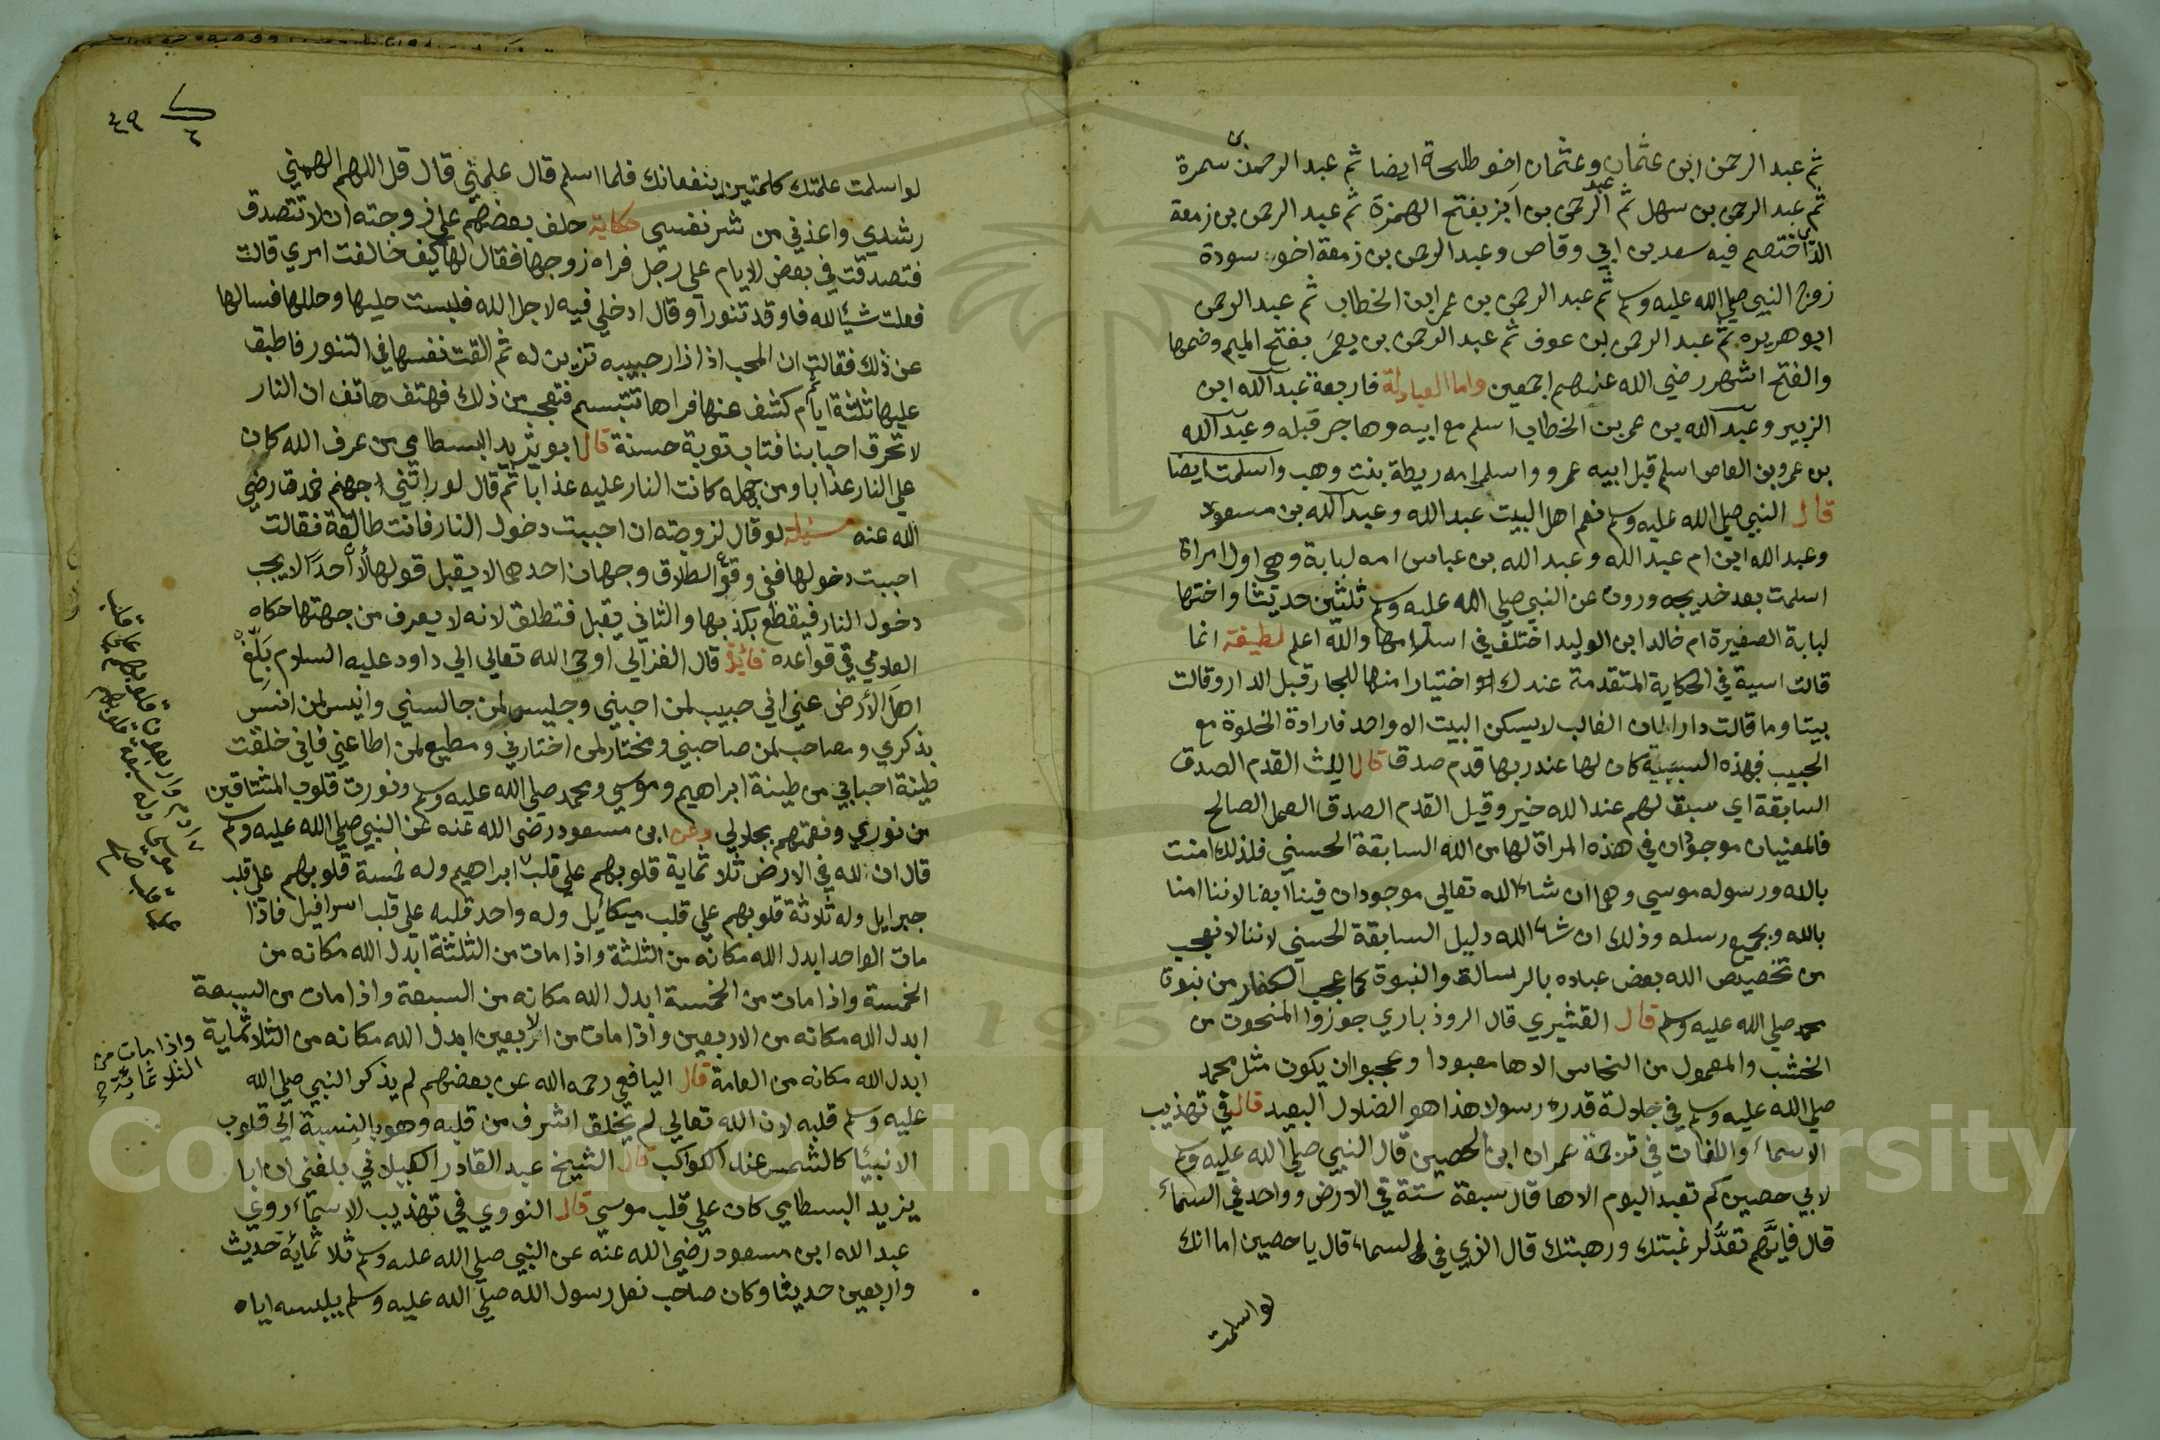 ثم عبد الرحمن ابن عثمان وعثمان اخو طلحة ايضا ثم عبد الرحمن بن سمرة
ثم عبد الرحمن بن سهل ثم عبد الرحمن بن ابز بفتح الهمزة ثم عبد الرحمن بن زمعة
الذي اختصم فيه سعد بن ابي وقاص وعبد الرحمن بن زمعة اخو سودة
زوج النبي صلي الله عليه وسلم ثم عبد الرحمن بن عمر ابن الخطاب ثم عبد الرحمن
ابو هريره ثم عبد الرحمن بن عوف ثم عبد الرحمن بن يعمر بفتح الميم وضمها
والفتح اشهر رضي الله عنهم اجمعين واما العبادلة فاربعة عبد الله ابن
الزبير وعبد الله بن عمر بن الخطاب اسلم مع ابيه وهاجر قبله وعبد الله
بن عمرو بن العاص اسلم قبل ابيه عمرو واسلم امه ريطة بنت وهب واسلمت ايضا
قال النبي صلي الله عليه وسلم نعم اهل البيت عبد الله وعبد الله بن مسعود
وعبد الله ابن ام عبد الله وعبد الله بن عباس امه لبابة وهي اول امراة
اسلمت بعد خديجه ورون عن النبي صلي الله عليه وسلم ثلثين حديثا واختها
لبابة الصغيرة ام خالد ابن الوليد اختلف في اسلامها والله اعلم لطيفة انما
قالت اسية في الحكاية المتقدمة عندك اختيارا منها للجار قبل الدار وقالت
بيتا وما قالت دارا لان الغالب لا يسكن البيت الا واحد فارادة الخلوة مع
الحبيب فهذه السببية كان لها عند ربها قدم صدقا قال الليث القدم الصدق
السابقة اي سبق لهم عند الله خير وقيل القدم الصدق العمل الصالح
فالمعنيان موجودان في هذه المراة لها من الله السابقة الحسني فلذلك امنت
بالله ورسوله موسي وهما ان شاء الله تعالي موجودان فينا ايضا لاننا امنا
بالله وبجميع رسله وذلك ان شاء الله دليل السابقة الحسني لاننا لا نعجب
من تخصيص الله بعض عباده بالرسالة والنبوة كما عجب الكفار من نبوة
محمد صلي الله عليه وسلم قال القشيري قال الروذباري جوزوا المنحوت من
الخشب والمعمول من النحاس الاها معبودا وعجبوا ان يكون مثل محمد
صلي الله عليه وسلم في جلالة قدره رسولا هذا هو الضلال البعيد قال في تهذيب
الاسماء واللغات في ترجمة عمران ابن الحصين قال النبي صلي الله عليه وسلم
لابي حصين كم تعبد اليوم الاها قال سبعة ستة في الارض وواحد في السماء
قال فايهم تعد لرغبتك ورهبتك قال الذي في السماء قال يا حصين اما انك
لو اسلمت
٤٩
لو اسلمت علمتك كلمتين ينفعانك فلما اسلم قال علمني قال قل اللهم الهمني
رشدي واعذني من شر نفسي حكاية حلف بعضهم علي زوجته ان لا تتصدق
فتصدقت في بعض الايام علي رجل فراه زوجها فقال لها كيف خالفت امري قالت
فعلت شيئا لله فاوقد تنورا وقال ادخلي فيه لاجل الله فلبست حليها وحللها فسالها
عن ذلك فقالت ان المحب اذا زار حبيبه تزين له ثم القت نفسها في التنور فاطبق
عليها ثلثة ايام ثم كشف عنها فراها تتبسم فتعجب من ذلك فهتف هاتف ان النار
لا تحرق احبابنا فتاب توبة حسنة قال ابو يزيد البسطامي من عرف الله كان
علي النار عذابا ومن جهله كانت النار عليه عذابا ثم قال لو راتني جهنم خمدت رضي
الله عنه مسئلة لو قال لزوجته ان احببت دخول النار فانت طالقة فقالت
احببت دخولها ففي وقوع الطلاق وجهان احدهما لا يقبل قولها لان احدا لا يحب
دخول النار فيقطع بكذبها والثاني يقبل فتطلق لانه لا يعرف من جهتها حكاه
العلامي في قواعده فائدة قال الغزالي اوحي الله تعالي الي داود عليه السلام بلغ
اهل الارض عني اني حبيب لمن احبني وجليس لمن جالسني وانيس لمن انس
بذكري ومصاحب لمن صاحبني ومختار لمن اختارني ومطيع لمن اطاعني فاني خلقت
طينة احبابي من طينة ابراهيم وموسي ومحمد صلي الله عليه وسلم ونورت قلوب المشتاقين
من نوري ونعمتهم بجلالي وعن ابن مسعود رضي الله عنه عن النبي صلي الله عليه وسلم
قال ان لله في الارض ثلاثماية قلوبهم علي قلب ابراهيم وله خمسة قلوبهم علي قلب
جبرايل وله ثلاثة قلوبهم علي قلب ميكائيل وله واحد قلبه علي قلب اسرافيل فاذا
مات الواحد ابدل الله مكانه من الثلثة واذا مات من الثلثة ابدل الله مكانه من
الخمسة واذا مات من الخمسة ابدل الله مكانه من السبعة واذا مات من السبعة
ابدل الله مكانه من الاربعين واذا مات من الاربعين ابدل الله مكانه من الثلاثماية
واذا مات من
الثلاثمائة
ابدل الله مكانه من العامة قال اليافعي رحمه الله عن بعضهم لم يذكر النبي صلي الله
عليه وسلم قلبه لان الله تعالي لم يخلق اشرف من قلبه وهو بالنسبة الي قلوب
الانبيا كالشمس عند الكواكب قال الشيخ عبد القادر الكيلاني بلغني ان ابا
يزيد البسطامي كان علي قلب موسي قال النووي في تهذيب الاسماء روي
عبد الله ابن مسعود رضي الله عنه عن النبي صلي الله عليه وسلم ثلاثماية حديث
واربعين حديثا وكان صاحب نعل رسول الله صلي الله عليه وسلم يلبسه اياه
Copyright © King Saud University
195